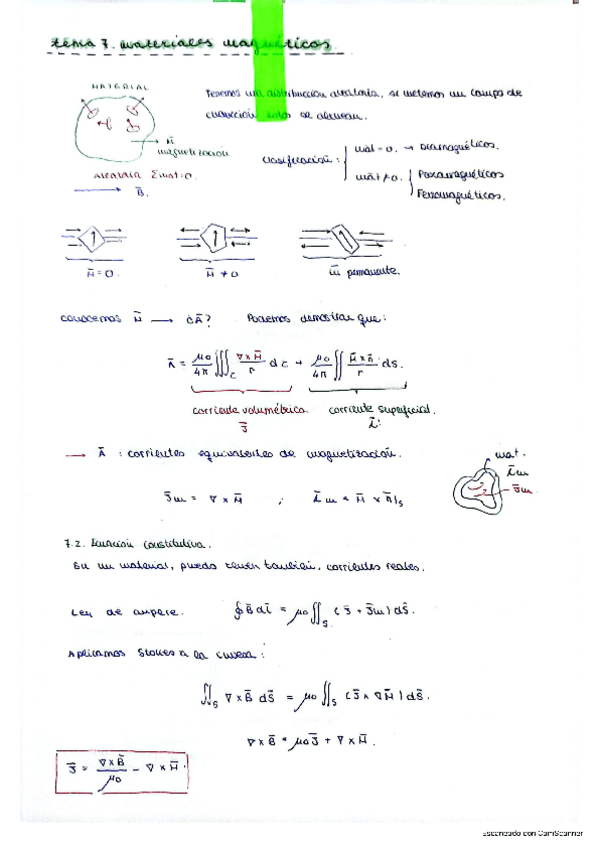 tema 7. materiales magnéticos
MATERIAL
Tenemos una distribución aleatoria, si metemos un campo de
solos se alinean.
M̄
magnetización
Aleatoria Σmat=0.
B̄.
Clasificación:
mat = 0. → Diamagnéticos.
m̄at ≠ 0.
Paramagnéticos
Ferromagnéticos.
M̄ = 0.
M̄ ≠ 0
m̄ permanente.
conocemos M̄ → ¿Ā? Podemos demostrar que:
Ā = μ0/4π ∭c ∇×M̄/r dc + μ0/4π ∬ M̄×n̄/r ds.
corriente volumétrica corriente superficial.
J̄ L̄:
→ Ā : corrientes equivalentes de magnetización.
J̄m = ∇ × M̄ ; L̄m = M̄ × n̄|s
mat.
L̄m
J̄m.
7.2. Ecuación constitutiva.
En un material, puedo tener también, corrientes reales.
Ley de ampere. ∮B̄ dl̄ = μ0 ∬s (J̄ + J̄m) dS̄.
Aplicamos Stokes a la curva:
∬s ∇ × B̄ dS̄ = μ0 ∬s (J̄ × ∇ M̄) dS̄.
∇ × B̄ = μ0 J̄ + ∇ × M̄.
J̄ = ∇×B̄/μ0 − ∇ × M̄.
Escaneado con CamScanner